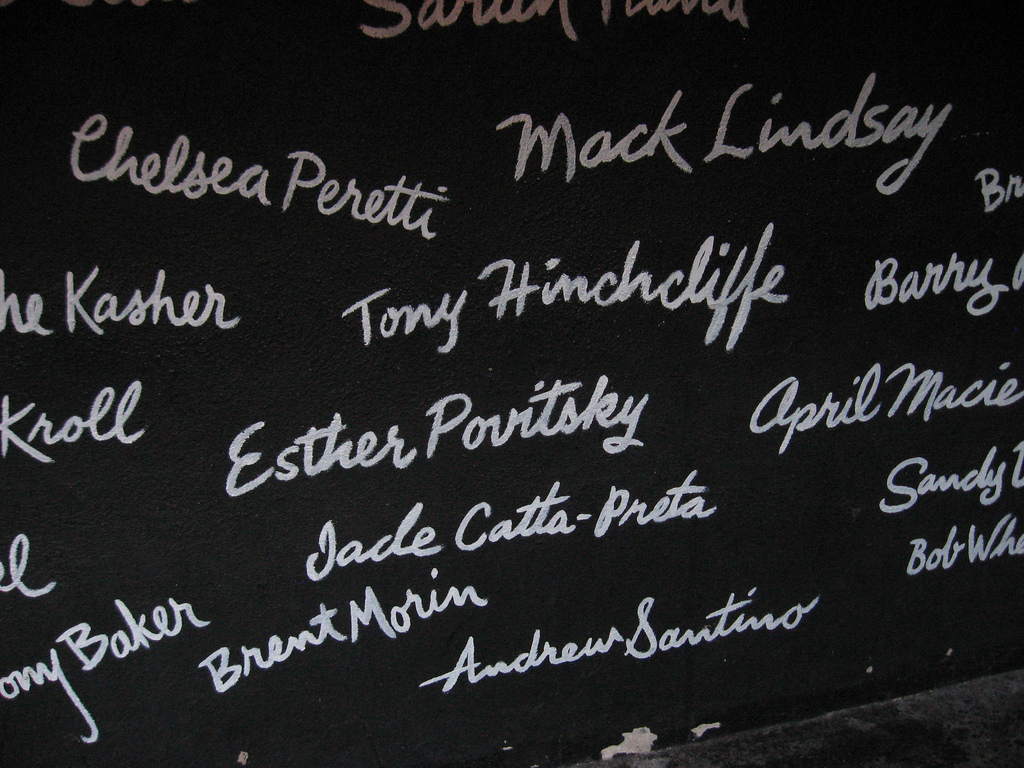 Chelsea Peretti
Mack Lindsay
Br
he Kasher
Tony Hinchcliffe
Barry
Kroll
Esther Povitsky
April Macie
Jade Catta-Preta
Sandy
el
Bob Whe
omy Baker
Brent Morin
Andrew Santino